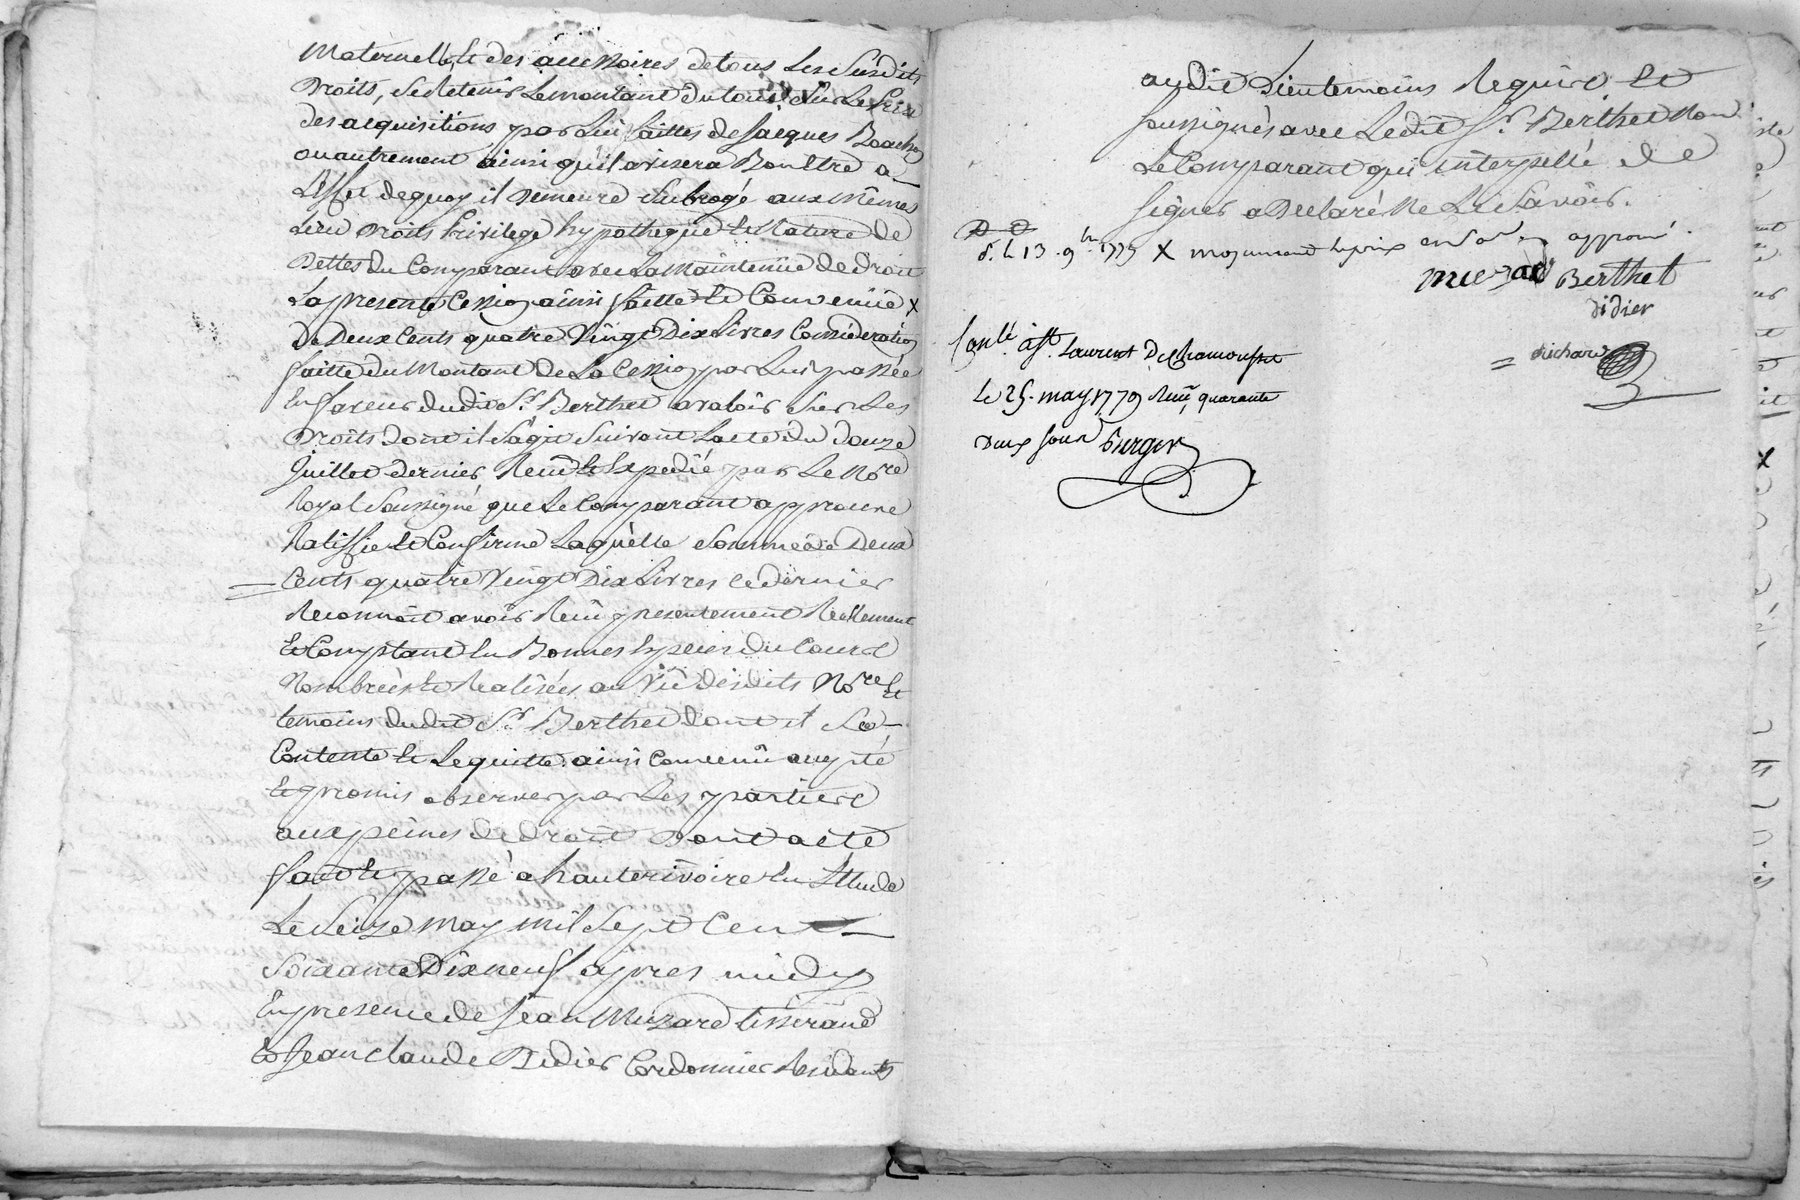 Maternelle, et des accessoires de tous les susdits
Droits, se Retenir le montant du tout sur le prix
des acquisitions par lui faittes de Jacques
ou autrement ainsi qu'il avisera Bon Etre a
L'effet de quoy il Demeure subrogé aux mêmes
Lieu Droits Privilege hypotheque et Nature de
Dettes du Comparant avec la Maintenüe de droit
La presente Cession ainsi faitte et Convenüe x
de Deux Cents quatre Vingt Dix Livres Considération
faitte du Montant de La Cession par Lui passée
En faveur dudit Sr. Berthet a valoir sur Les
Droits dont il S'agit suivant Lacte du douze
Juillet dernier, Reçu et Expedié par Le Nore
Royal Soussigné que le Comparant approuve
Ratiffie et Confirme Laquelle Somme de Deux
Cents quatre Vingt Dix Livres ce dernier
Reconnoit avoir Reçu presentement Reellement
et Comptant En Bonnes Especes du Cours
Nombrées et Realisées au Vû desdits Nore et
temoins dudit Sr. Berthet dont il Se
Contente et Le quitte. ainsi Convenû accepté
et promis observer par Les parties
aux peines de droit Dont acte
fait et passé a hauterivoire En L'Etude
Le Seize May mil Sept Cent
Soixante Dix neuf apres midy
En presence de Jean Muzard tisserand
et Jean Claude Didier Cordonnier Residants
audit Lieu temoins Requis et
soussignés avec Ledit Sr. Berthet Non
Le Comparant qui interpellé de
signer a Declaré Ne Le Savoir.
x moyennant le prix approuvé.
Berthet
didier
Richard
Conlé à St. Laurent De Chamousset
Le 25. may 1779 Reçu quarante
Deux sous Burger